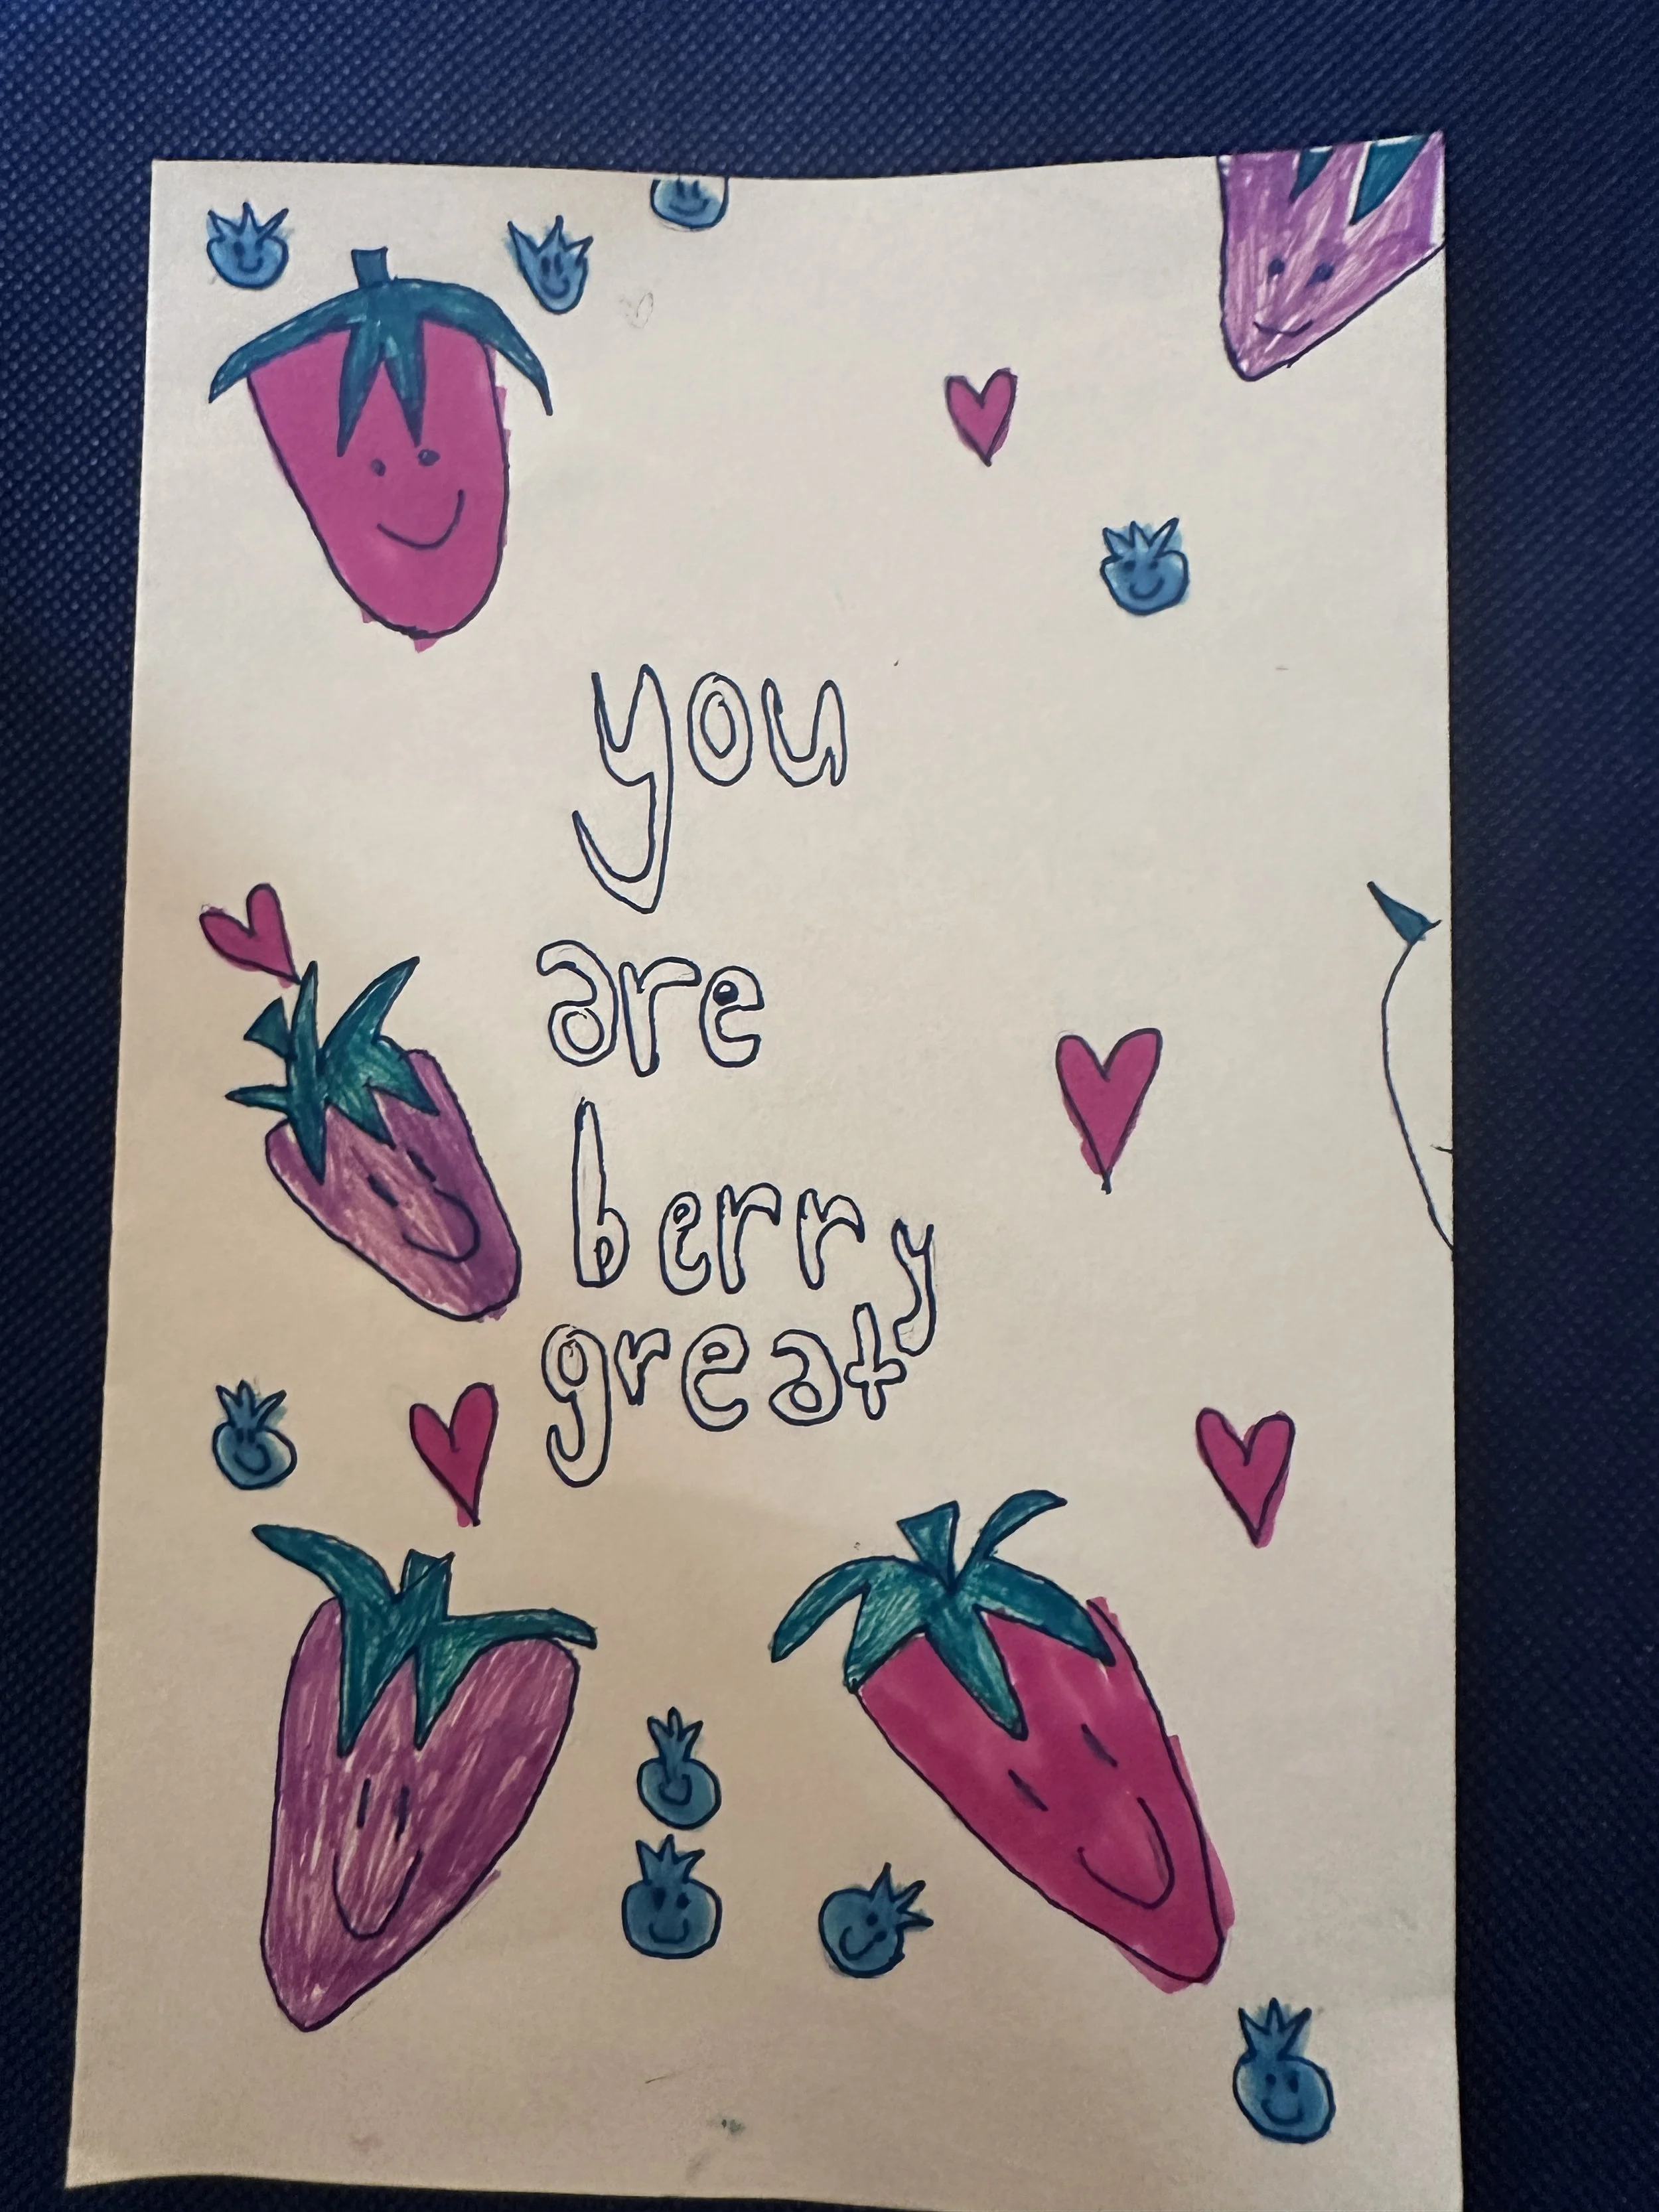 you
are
berry
great